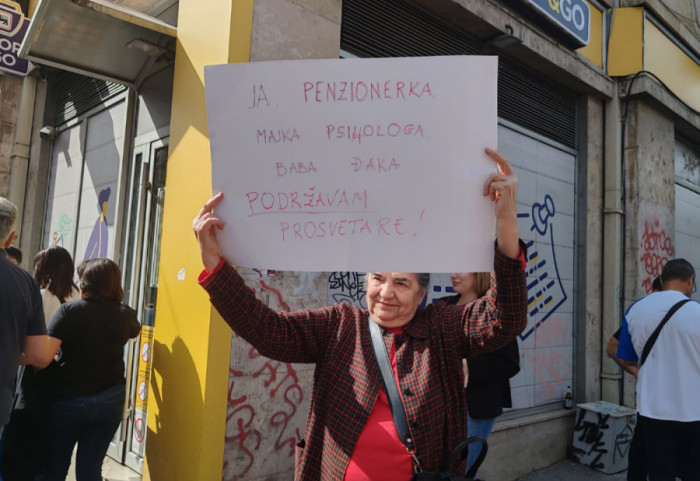 JA, PENZIONERKA
MAJKA PSIHOLOGA
BABA ĐAKA
PODRŽAVAM
PROSVETARE!
&GO